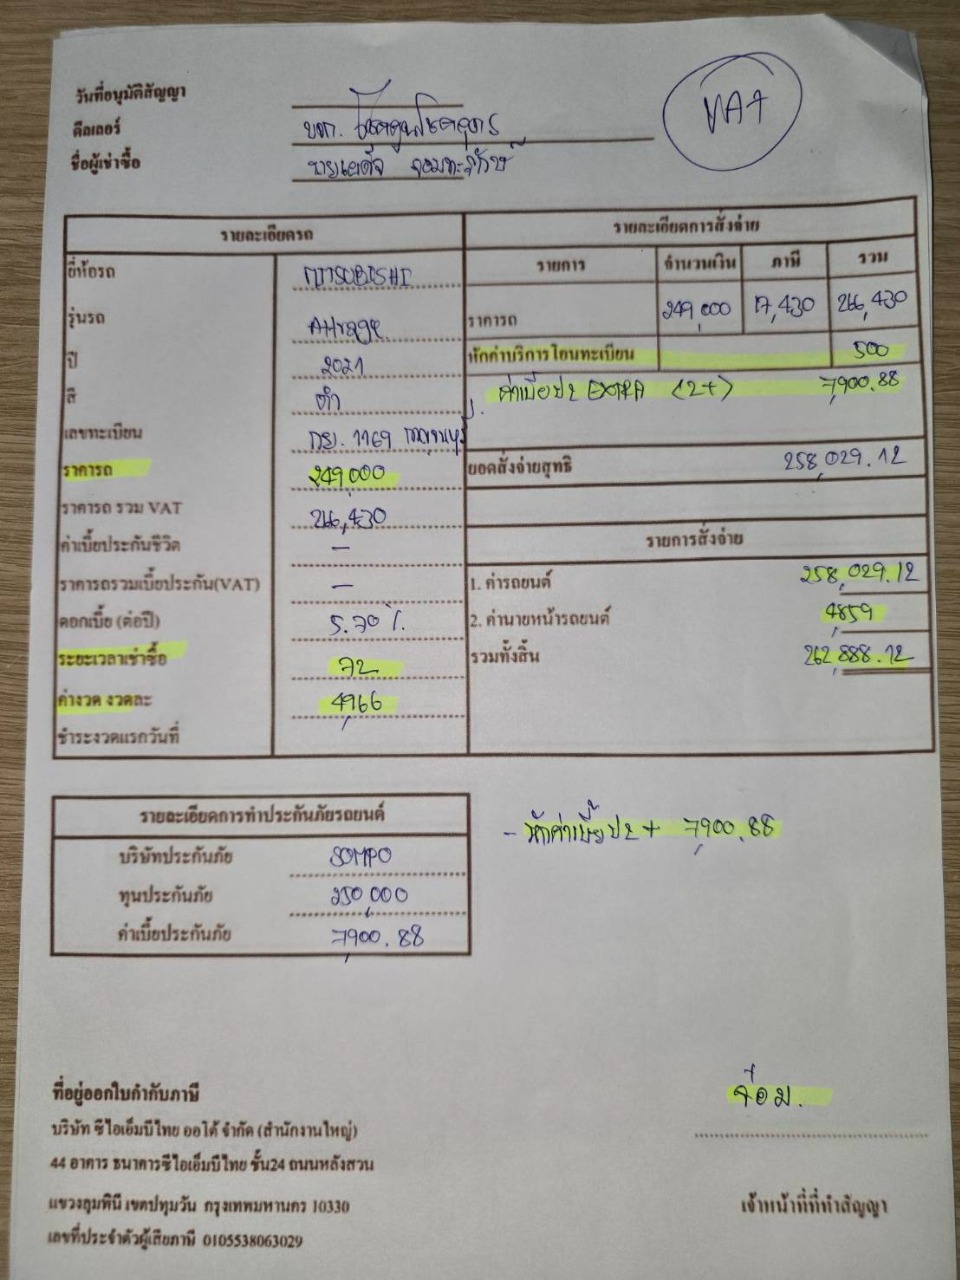 วันที่อนุมัติสัญญา
ดีลเลอร์ บจก.
ชื่อผู้เช่าซื้อ
VAT
รายละเอียดรถ
ยี่ห้อรถ MITSUBISHI
รุ่นรถ Attrage
ปี 2021
สี ดำ
เลขทะเบียน 1169 กาญจนบุรี
ราคารถ 249,000
ราคารถ รวม VAT 266,430
ค่าเบี้ยประกันชีวิต –
ราคารถรวมเบี้ยประกัน(VAT) –
ดอกเบี้ย (ต่อปี) 5.70 %
ระยะเวลาเช่าซื้อ 72
ค่างวด งวดละ 4,966
ชำระงวดแรกวันที่
รายละเอียดการสั่งจ่าย
รายการ จำนวนเงิน ภาษี รวม
ราคารถ 249,000 17,430 266,430
หักค่าบริการโอนทะเบียน 500
ค่าเบี้ย ป2 EXTRA (2+) 7,900.88
ยอดสั่งจ่ายสุทธิ 258,029.12
รายการสั่งจ่าย
1. ค่ารถยนต์ 258,029.12
2. ค่านายหน้ารถยนต์ 4,859
รวมทั้งสิ้น 262,888.12
รายละเอียดการทำประกันภัยรถยนต์
บริษัทประกันภัย SOMPO
ทุนประกันภัย 250,000
ค่าเบี้ยประกันภัย 7,900.88
- หักค่าเบี้ย ป2+ 7,900.88
ที่อยู่ออกใบกำกับภาษี
บริษัท ซีไอเอ็มบีไทย ออโต้ จำกัด (สำนักงานใหญ่)
44 อาคาร ธนาคารซีไอเอ็มบีไทย ชั้น24 ถนนหลังสวน
แขวงลุมพินี เขตปทุมวัน กรุงเทพมหานคร 10330
เลขที่ประจำตัวผู้เสียภาษี 0105538063029
เจ้าหน้าที่ที่ทำสัญญา